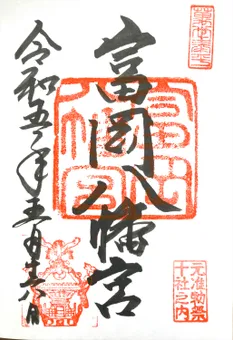 富岡八幡宮
令和五年五月十八日
富岡八幡宮
元准勅祭
十社之内